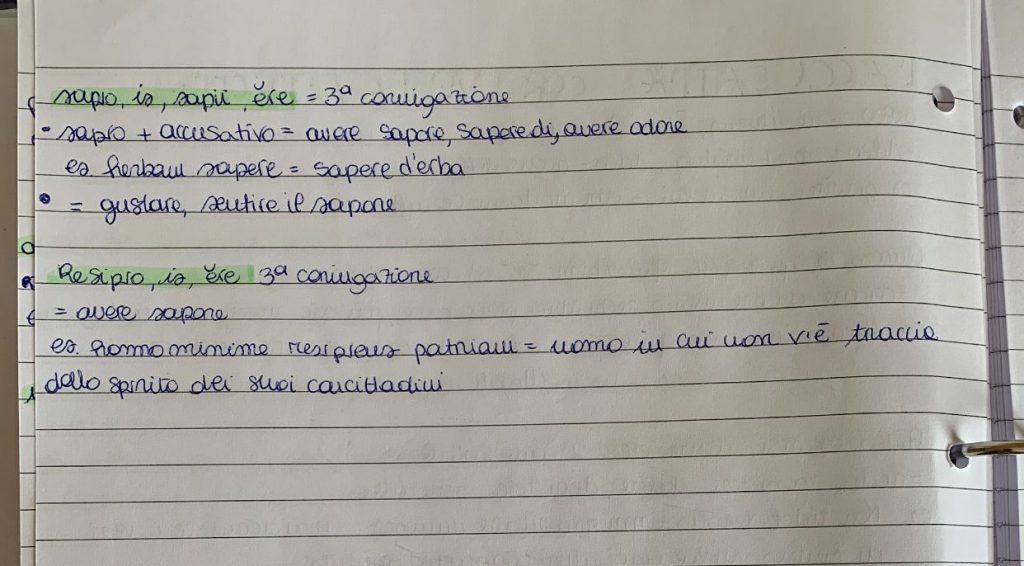 sapio, is, sapii, ĕre = 3ª coniugazione
• sapio + accusativo = avere sapore, sapere di, avere odore
es herbam sapere = sapere d'erba
• = gustare, sentire il sapore
Resipio, is, ĕre 3ª coniugazione
= avere sapore
es. homo minime resipiens patriam = uomo in cui non v'è traccia
dello spirito dei suoi concittadini